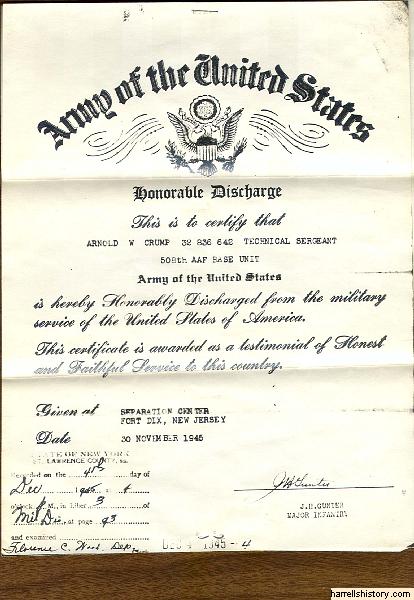 Army of the United States
Honorable Discharge
This is to certify that
ARNOLD W CRUMP 32 836 642 TECHNICAL SERGEANT
508th AAF BASE UNIT
Army of the United States
is hereby Honorably Discharged from the military
service of the United States of America.
This certificate is awarded as a testimonial of Honest
and Faithful Service to this country.
Given at SEPARATION CENTER
FORT DIX, NEW JERSEY
Date 30 NOVEMBER 1945
STATE OF NEW YORK
ST. LAWRENCE COUNTY, ss.
Recorded on the 4th day of
Dec 1945 at 4
o'clock P. M., in Liber 3 of
Mil Dis. at page 93
and examined
Florence C. Dep.
J.H. Gunter
J.H. GUNTER
MAJOR INFANTRY
DEC 4 1945 - 4
harrellshistory.com